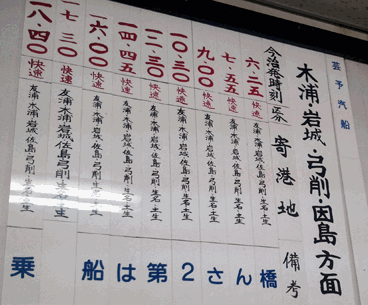 芸予汽船
木浦・岩城・弓削・因島方面
今治発時刻 区分 寄港地 備考
六・二五 快速 友浦 木浦 岩城 佐島 弓削 生名 土生
七・五五 快速 友浦 木浦 岩城 佐島 弓削 生名 土生
九・〇〇 快速 友浦 木浦 岩城 佐島 弓削 生名 土生
一〇・三〇 快速 友浦 木浦 岩城 佐島 弓削 生名 土生
一二・三〇 快速 友浦 木浦 岩城 佐島 弓削 生名 土生
一四・四五 快速 友浦 木浦 岩城 佐島 弓削 生名 土生
一六・〇〇 快速 友浦 木浦 岩城 佐島 弓削 生名 土生
一七・三〇 快速 友浦 木浦 岩城 佐島 弓削 生名 土生
一八・四〇 快速 友浦 木浦 岩城 佐島 弓削 生名 土生
乗船は第2さん橋